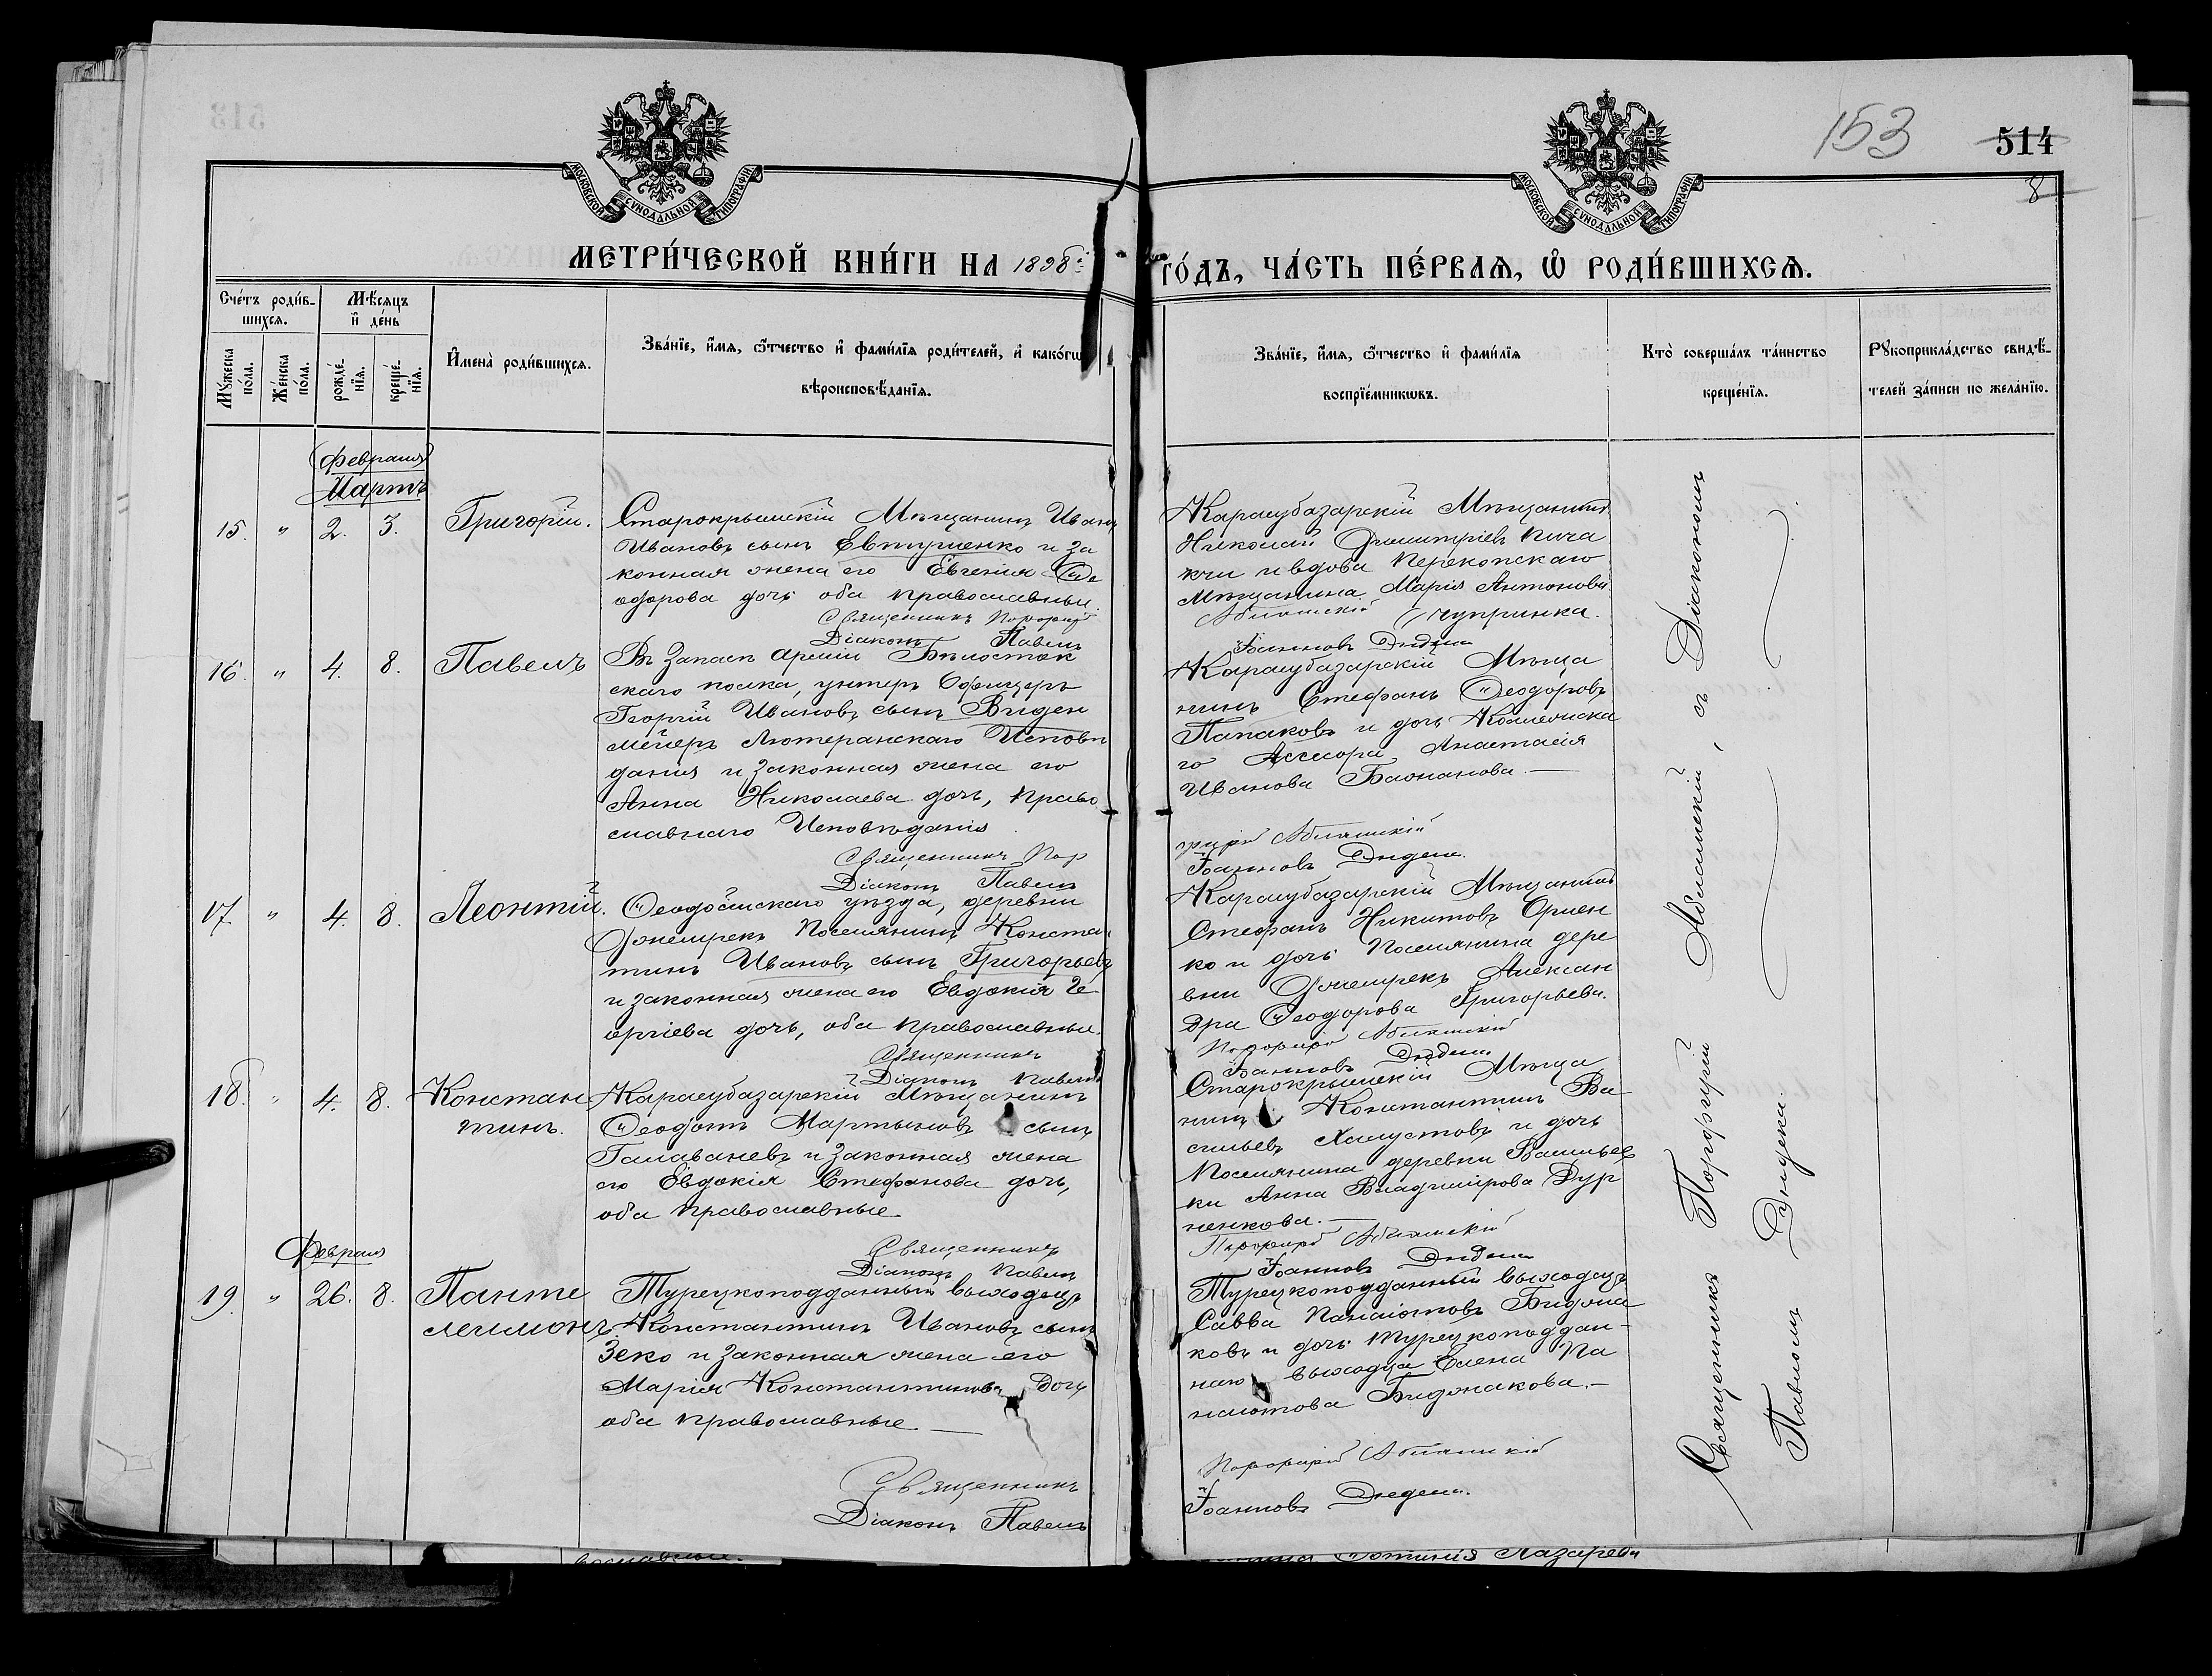 153
514
8
МОСКОВСКОЙ СѴНОДАЛЬНОЙ ТИПОГРАФІИ
МОСКОВСКОЙ СѴНОДАЛЬНОЙ ТИПОГРАФІИ
МЕТРИ́ЧЕСКОЙ КНИ́ГИ НА 1898й
ГО́ДЪ, ЧА́СТЬ ПЕ́РВАѦ, Ѡ҆ РОДИ́ВШИХСѦ.
Сче́тъ роди́в-
шихсѧ.
Мꙋ́жеска по́ла.
Же́нска по́ла.
Мѣ́сѧцъ
и҆ де́нь
рожде́-
нїѧ.
креще́-
нїѧ.
И҆мена̀ роди́вшихсѧ.
Зва́нїе, и҆́мѧ, ѻ҆́тчество и҆ фами́лїѧ роди́телей, и҆ како́гѡ
вѣроисповѣ́данїѧ.
Зва́нїе, и҆́мѧ, ѻ҆́тчество и҆ фами́лїѧ
воспрїе́мникѡвъ.
Кто̀ соверша́лъ та́инство
креще́нїѧ.
Рꙋкоприкла́дство свидѣ́-
телей за́писи по жела́нїю.
Февраля
Мартъ
15. " 2. 3. Григорій.
Старокрымскій Мѣщанинъ Иванъ
Ивановъ сынъ Евтушенко и за
конная жена его Евгенія Ѳе
одорова дочь оба православные.
Священникъ Порфирій
Діаконъ Павелъ
Карасубазарскій Мѣщанинъ
Николай Димитріевъ Пича
кчи и вдова Перекопскаго
Мѣщанина Марія Антонова
Чупринка.
Абламскій
Іоанновъ Дидека
16. " 4. 8. Павелъ
Въ Запасѣ Арміи Бѣлосток
скаго полка, унтеръ Офицеръ
Георгій Ивановъ сынъ Виден
мейеръ Лютеранскаго Исповѣ
данія и законная жена его
Анна Николаева дочь, Право
славнаго Исповѣданія
Священникъ Пор
Діаконъ Павелъ
Карасубазарскій Мѣща
нинъ Стефанъ Ѳеодоровъ
Папаковъ и дочь Коллежска
го Ассесора Анастасія
Иванова Бажанова.—
фирій Абламскій
Іоанновъ Дидека.
17. " 4. 8. Леонтій.
Ѳеодосійскаго уѣзда, деревни
Джемрекъ Поселянинъ Констан
тинъ Ивановъ сынъ Григорьевъ
и законная жена его Евдокія Ге
оргіева дочь, оба православные.
Священникъ
Діаконъ Павелъ
Карасубазарскій Мѣщанинъ
Стефанъ Никитовъ
ко и дочь Поселянина дере
вни Джемрекъ Алексан
дра Ѳеодорова Григорьева.
Порфирій Абламскій
Іоанновъ Дидека.
18. " 4. 8. Констан
тинъ.
Карасубазарскій Мѣщанинъ
Ѳеодотъ Мартыновъ сынъ
Галаваневъ и законная жена
его Евдокія Стефанова дочь,
оба православные
Священникъ
Діаконъ Павелъ
Старокрымскій Мѣща
нинъ Константинъ Ва
сильевъ Халустовъ и дочь
Поселянина деревни Васильев
ки Анна Владимірова Дур
ненкова.—
Порфирій Абламскій
Іоанновъ Дидека
Февраля
19. " 26. 8. Панте
леимонъ.
Турецкоподданный выходецъ
Константинъ Ивановъ сынъ
Зеко и законная жена его
Марія Константинова Дочь
оба православные —
Священникъ
Діаконъ Павелъ
Турецкоподданный выходецъ
Савва Панаіотовъ Биджа
ковъ и дочь Турецкоподдан-
наго выходца Елена Па
наіотова Биджакова.—
Порфирій Абламскій
Іоанновъ Дидека.
Священникъ Порфирій Абламскій, съ Діакономъ
Павломъ Дидека.
вославные.
Фотинія Лазарева